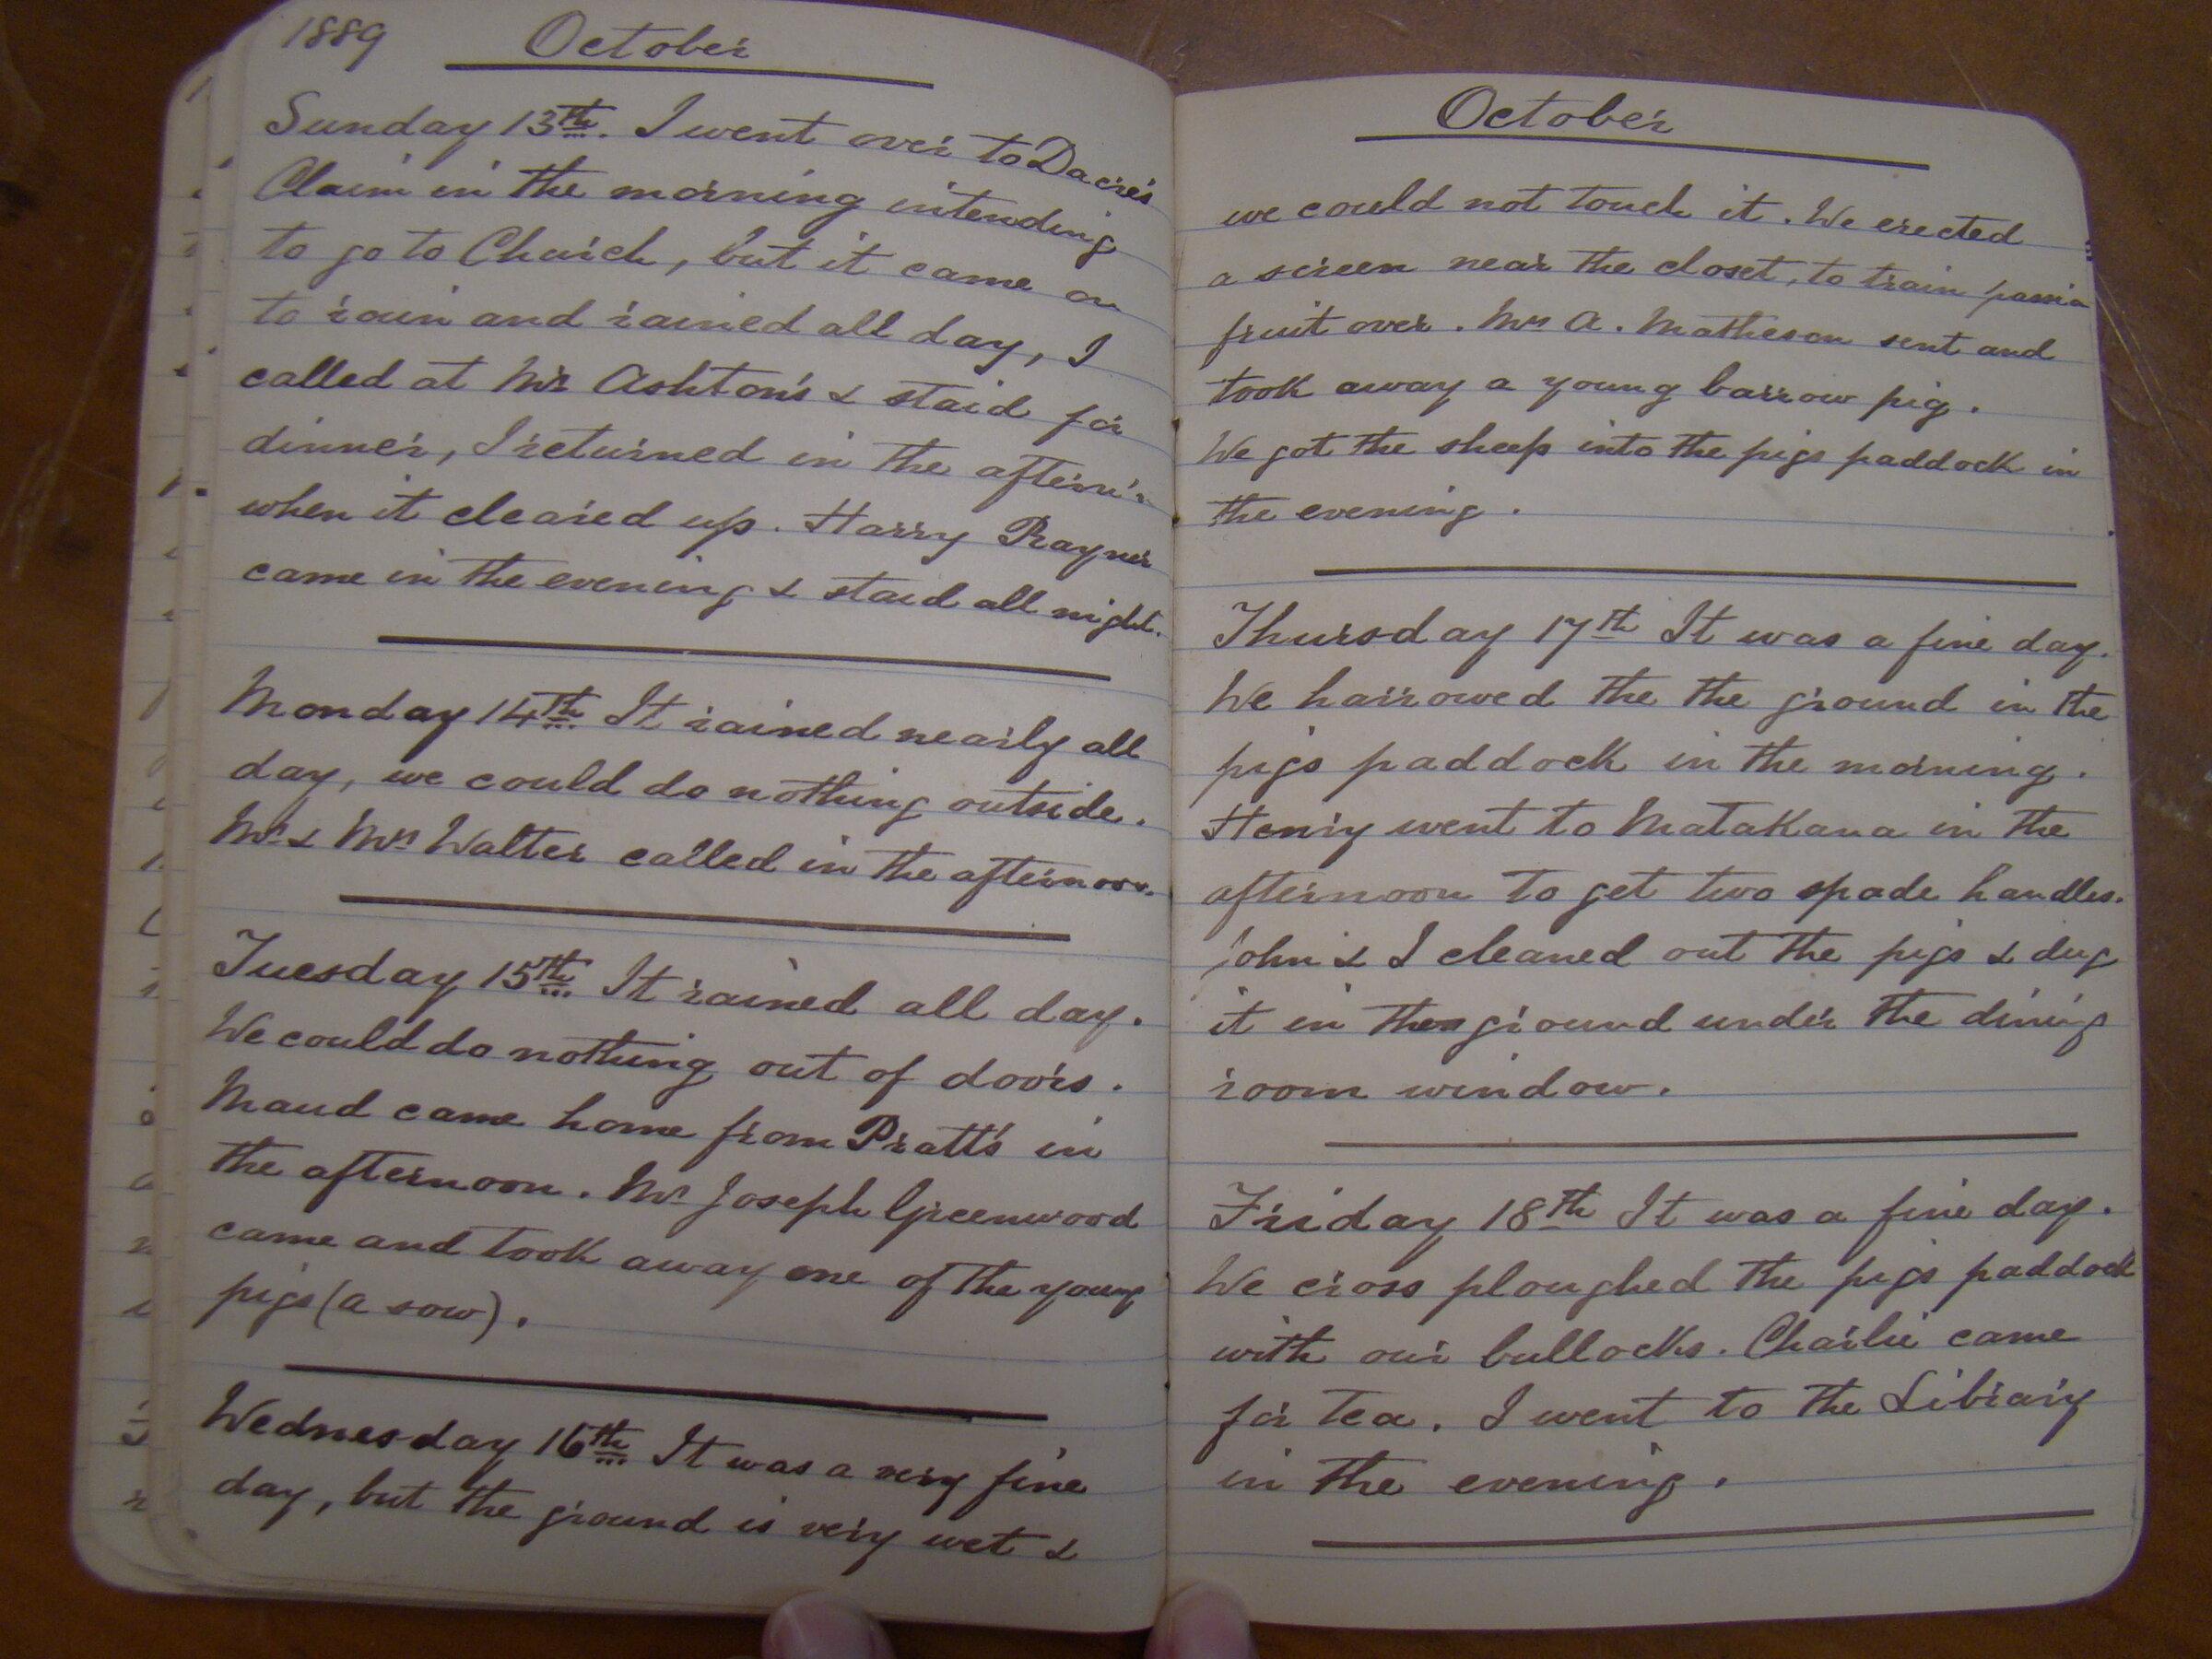 1889 October
Sunday 13th. I went over to Dacre's
Claim in the morning intending
to go to Church, but it came on
to rain and rained all day, I
called at Mr Ashton's & staid for
dinner, I returned in the aftern'n
when it cleared up. Harry Rayner
came in the evening & staid all night.
Monday 14th It rained nearly all
day, we could do nothing outside.
Mr & Mrs Walter called in the afternoon.
Tuesday 15th It rained all day.
We could do nothing out of doors.
Maud came home from Pratt's in
the afternoon. Mr Joseph Greenwood
came and took away one of the young
pigs (a sow).
Wednesday 16th It was a very fine
day, but the ground is very wet &
October
we could not touch it. We erected
a screen near the closet, to train passion
fruit over. Mrs A. Matheson sent and
took away a young barrow pig.
We got the sheep into the pigs paddock in
the evening.
Thursday 17th It was a fine day.
We harrowed the the ground in the
pigs paddock in the morning.
Henry went to Matakana in the
afternoon to get two spade handles.
John & I cleaned out the pigs & dug
it in the ground under the dining
room window.
Friday 18th It was a fine day.
We cross ploughed the pigs paddock
with our bullocks. Charlie came
for tea. I went to the Library
in the evening.